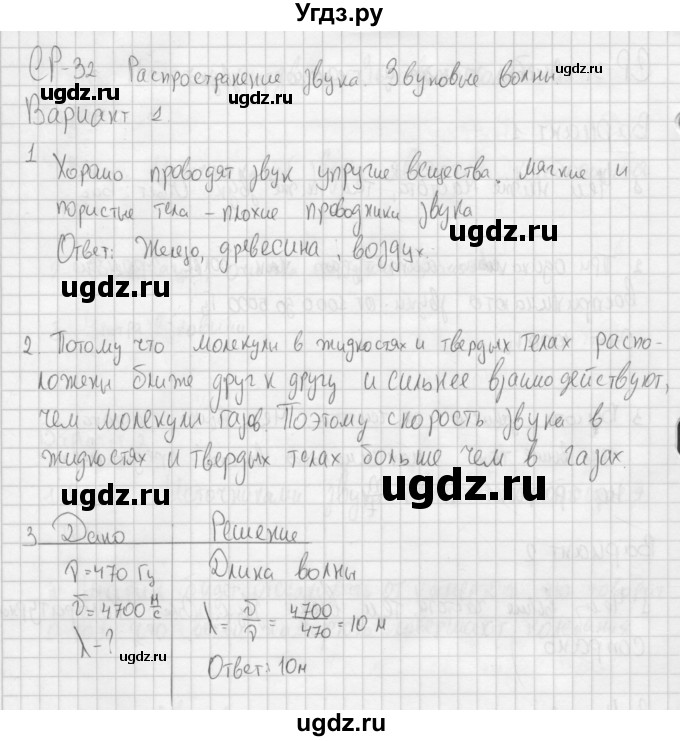 Угдз.ру
СР-32 Распространение звука. Звуковые волны
Вариант 1.
1 Хорошо проводят звук упругие вещества, мягкие и
пористые тела – плохие проводники звука
Ответ: Железо, древесина, воздух.
2. Потому что молекули в жидкостях и твердых телах распо-
ложени ближе друг к другу и сильнее взаимодействуют,
чем молекули газов. Поэтому скорость звука в
жидкостях и твердых телах больше чем в газах.
3. Дано Решение
ν = 470 Гц Длина волны
v̄ = 4700 м/с λ = v̄/ν = 4700/470 = 10 м
λ - ? Ответ: 10м
ugdz.ru
ugdz.ru
ugdz.ru
ugdz.ru
ugdz.ru
ugdz.ru
ugdz.ru
ugdz.ru
ugdz.ru
ugdz.ru
ugdz.ru